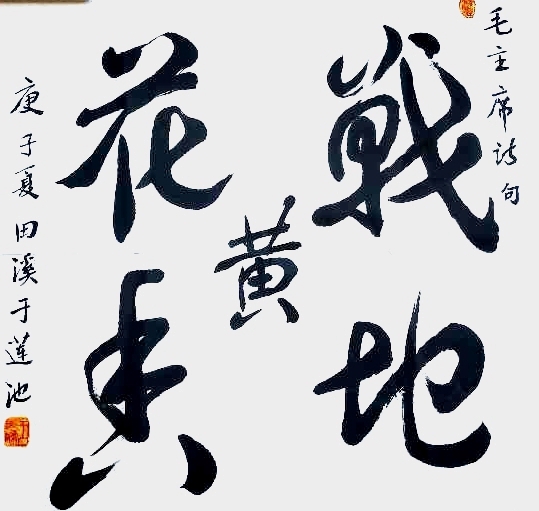 毛主席诗句
戰地
黄
花香
庚子夏田溪于蓮池